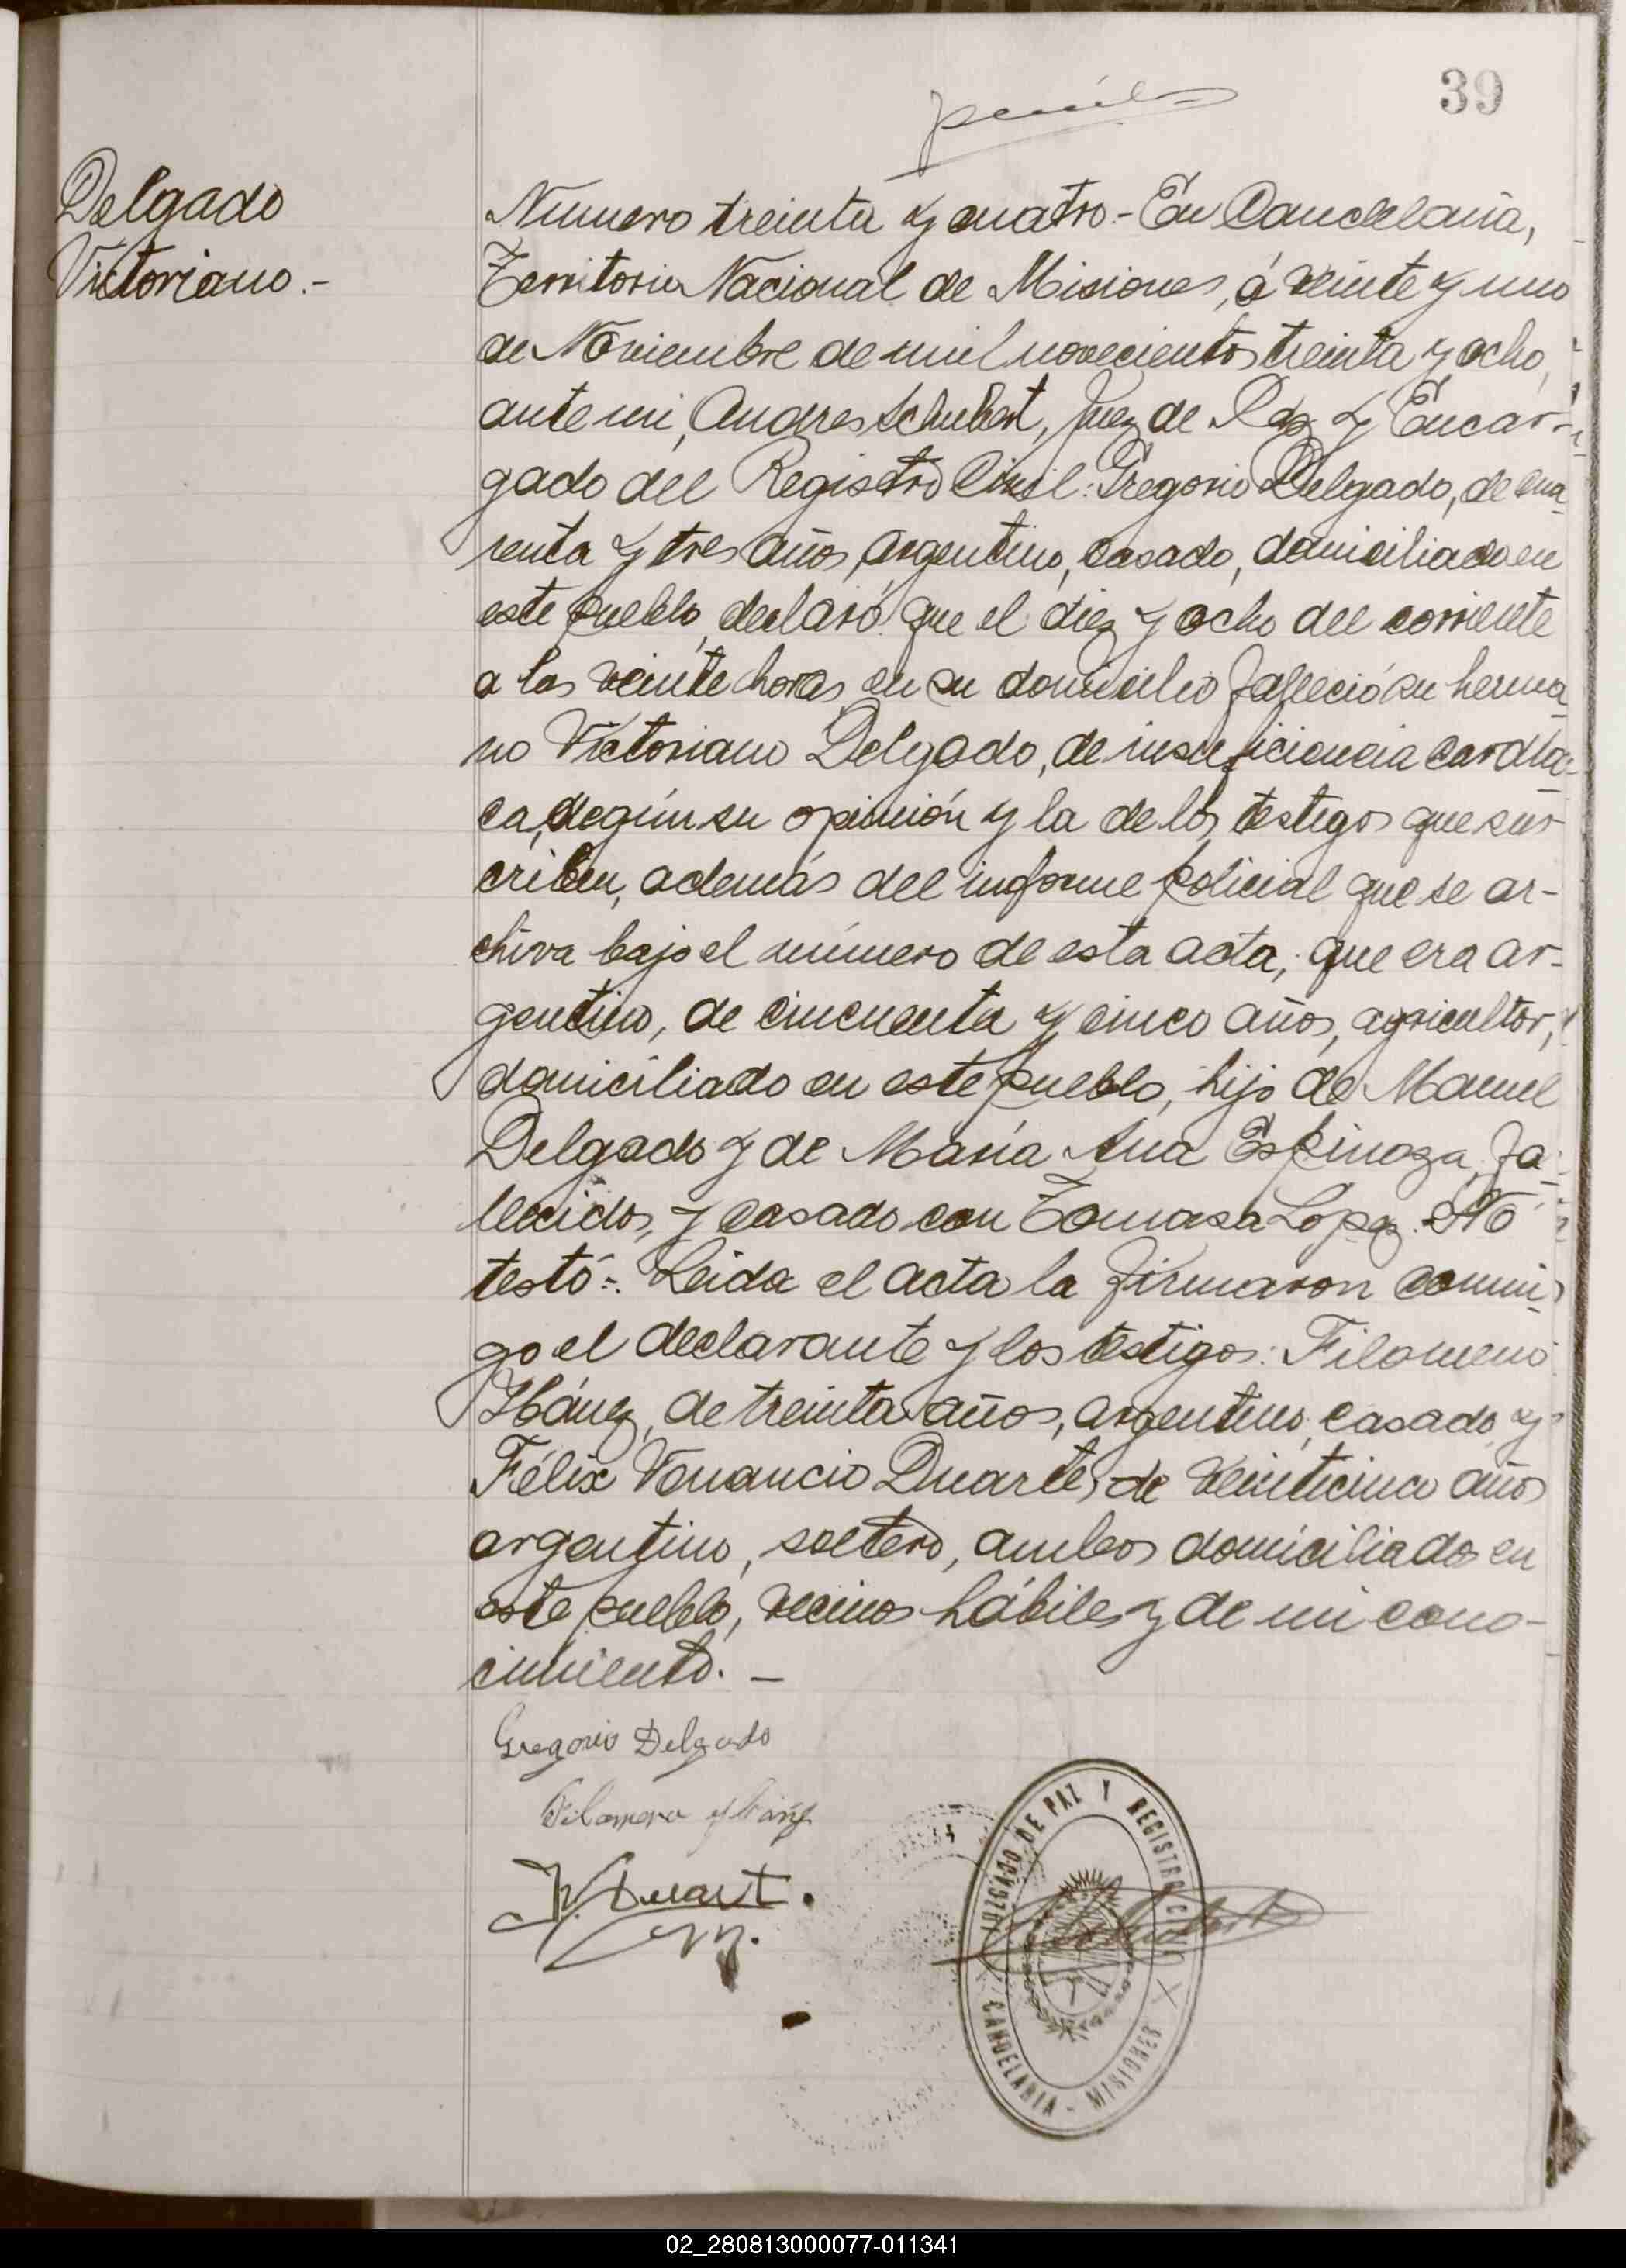 39
Delgado
Victoriano.-
Número treinta y cuatro.- En Candelaria,
Territorio Nacional de Misiones, á veinte y uno
de Noviembre de mil novecientos treinta y ocho,
ante mí, Andres Schubert, Juez de Paz y Encar-
gado del Registro Civil: Gregorio Delgado, de cua
renta y tres años, argentino, casado, domiciliado en
este pueblo, declaró: que el diez y ocho del corriente
a las veinte horas en su domicilio falleció su herma
no Victoriano Delgado, de insuficiencia cardía-
ca, según su opinión y la de los testigos que sus
criben, además del informe policial que se ar-
chiva bajo el número de esta acta; que era ar-
gentino, de cincuenta y cinco años, agricultor,
domiciliado en este pueblo, hijo de Manuel
Delgado y de María Ana Espinoza, fa-
llecidos, y casado con Tomasa Lopez. No
testó.- Leida el acta la firmaron conmi
go el declarante y los testigos: Filomeno
Ibánez, de treinta años, argentino, casado y
Félix Venancio Duarte, de veinticinco años
argentino, soltero, ambos domiciliados en
este pueblo, vecinos hábiles y de mi cono-
cimiento. -
Gregorio Delgado
Filomeno
JUZGADO DE PAZ Y REGISTRO CIVIL
CANDELARIA - MISIONES
02_280813000077-011341